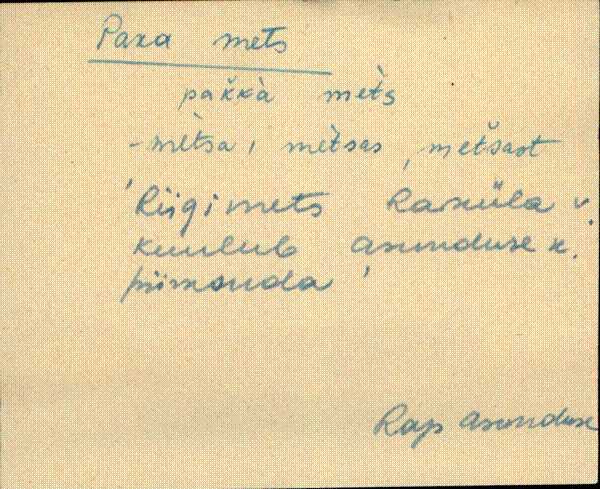 Paka mets
pakkà mèts
-mètsa, mètsas, metsast
'Riigimets Raküla v.
kuulub asunduse k.
piirkonda'
Rap asunduse